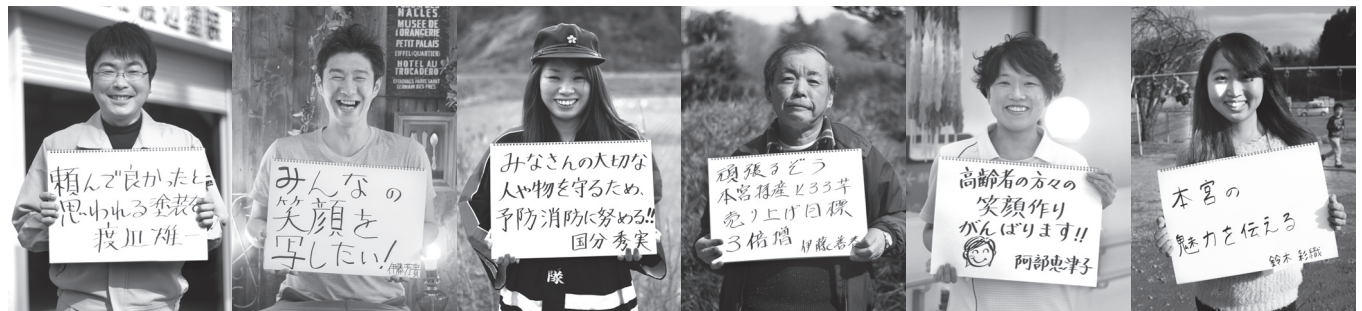 頼んで良かったと
思われる塗装を
渡辺雄一
NALLES
MUSEE DE
L'ORANGERIE
PETIT PALAIS
(EIFFEL/QUARTIER)
HOTEL AU
TROCADERO
みんなの
笑顔を
写したい!
みなさんの大切な
人や物を守るため、
予防消防に努める!!
国分秀実
隊
頑張るぞう
本宮特産とろろ芋
売り上げ目標
3倍増 伊藤善
高齢者の方々の
笑顔作り
がんばります!!
阿部恵津子
本宮の
魅力を伝える
鈴木彩織